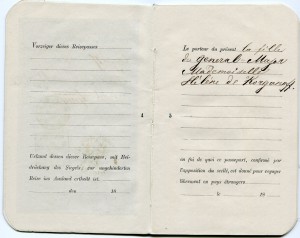 Vorzeiger dieses Reisepasses
Urkund dessen dieser Reisepass, mit Bei-
drückung des Siegels, zur ungehinderten
Reise ins Ausland ertheilt ist
den 18
4
Le porteur du présent la fille
du général-Major
Mademoiselle
Hélène de
en foi de quoi ce passeport, confirmé par
l'apposition du scellé, est donné pour voyager
librement en pays étrangers
le 18
5